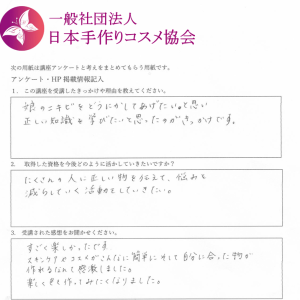 一般社団法人
日本手作りコスメ協会
次の用紙は講座アンケートと考えをまとめてもらう用紙です。
アンケート・HP掲載情報記入
1. この講座を受講したきっかけや理由を教えてください。
娘のニキビをどうにかしてあげたいと思い
正しい知識を学びたいと思ったのがきっかけです。
2. 取得した資格を今後どのように活かしていきたいですか？
たくさんの人に正しい物を伝えて、悩みを
減らしていく活動をしていきたい。
3. 受講された感想をお聞かせください。
すごく楽しかったです
スキンケアやコスメがこんなに簡単に そして自分に合った物が
作れるなんて感激しました。
楽しくて作ってみたくなりました。